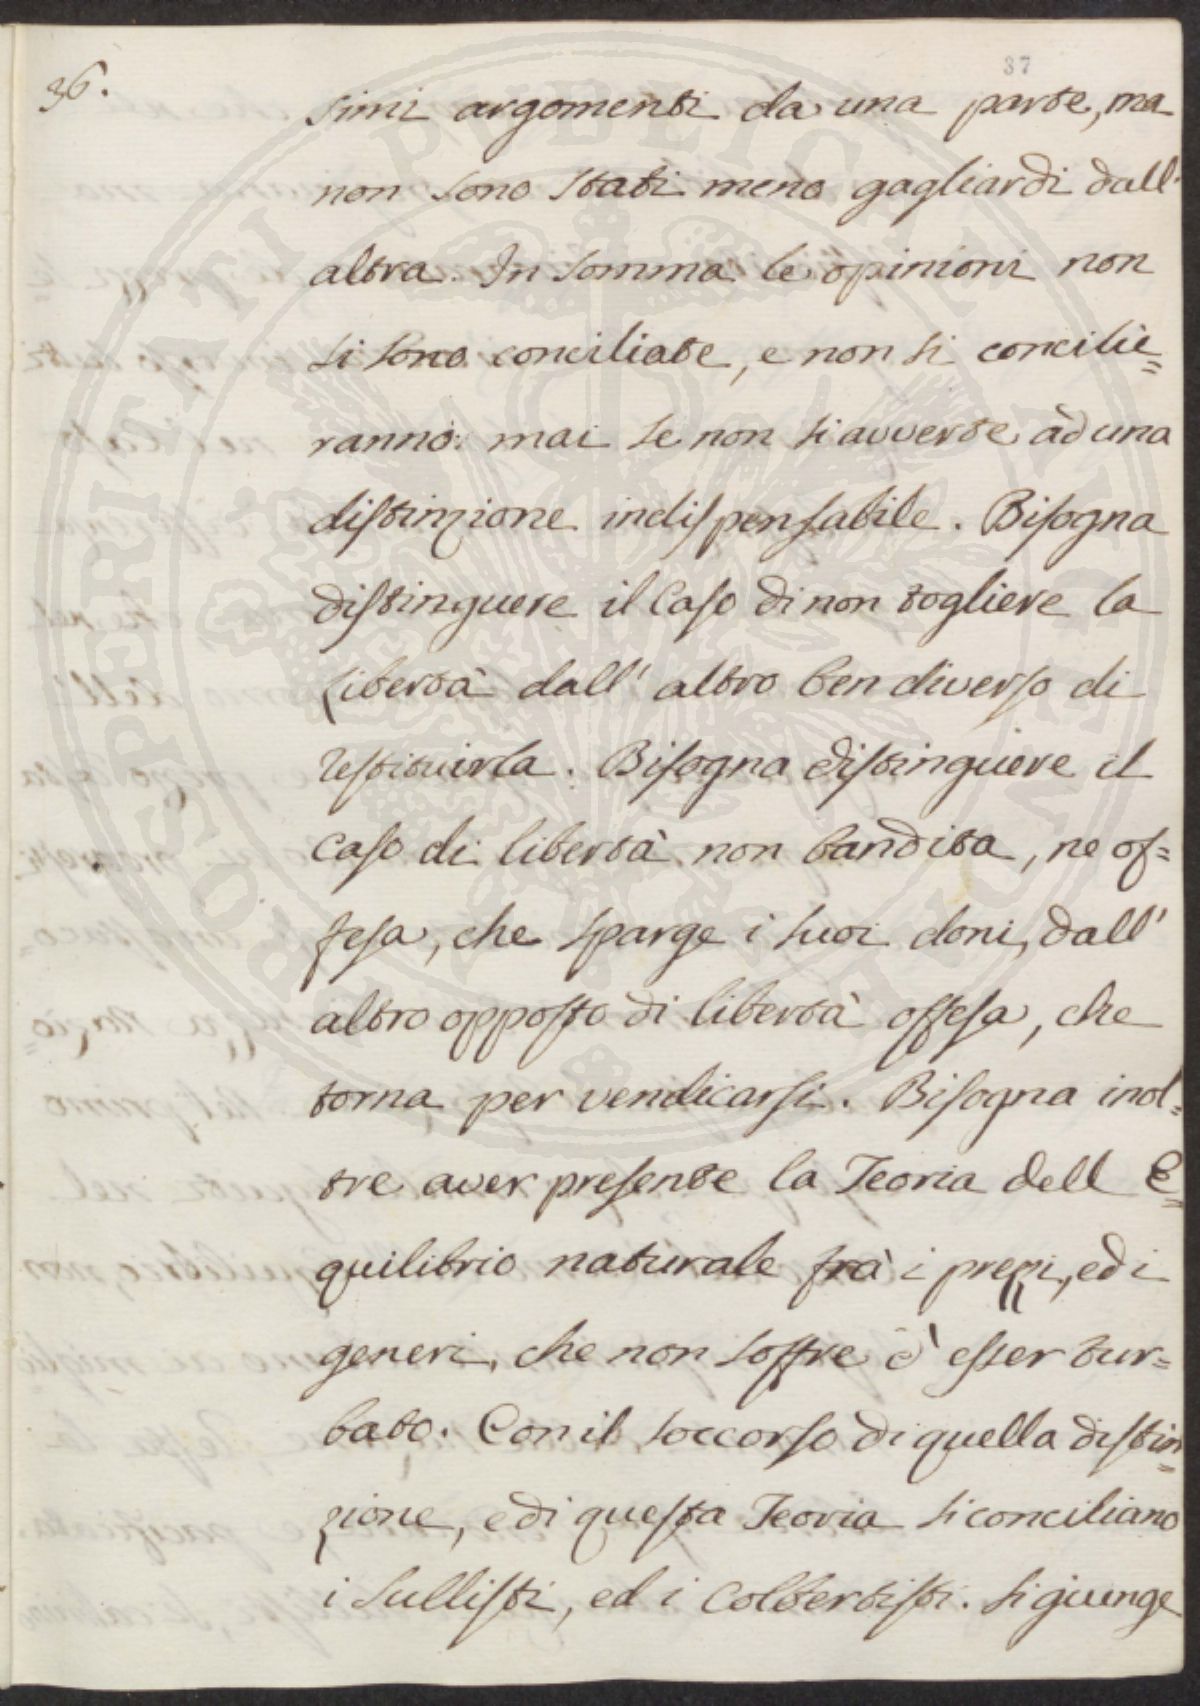 36.
37
simi argomenti da una parte, ma
non sono stati meno gagliardi dall'
altra. In somma le opinioni non
si sono conciliate, e non si concilie=
ranno mai se non si avverte ad una
distinzione indispensabile. Bisogna
distinguere il Caso di non togliere la
libertà dall' altro ben diverso di
restituirla. Bisogna distinguere il
Caso di libertà non bandita, ne of=
fesa, che sparge i suoi doni, dall'
altro opposto di libertà offesa, che
torna per vendicarsi. Bisogna inol=
tre aver presente la Teoria dell E=
quilibrio naturale frà i prezzi, ed i
generi, che non soffre d' esser tur=
bato. Con il soccorso di quella distin=
zione, e di questa Teoria si conciliano
i Sullisti, ed i Colbertisti. Si giunge
PROSPERITATI PUBLICAE AUGENDAE